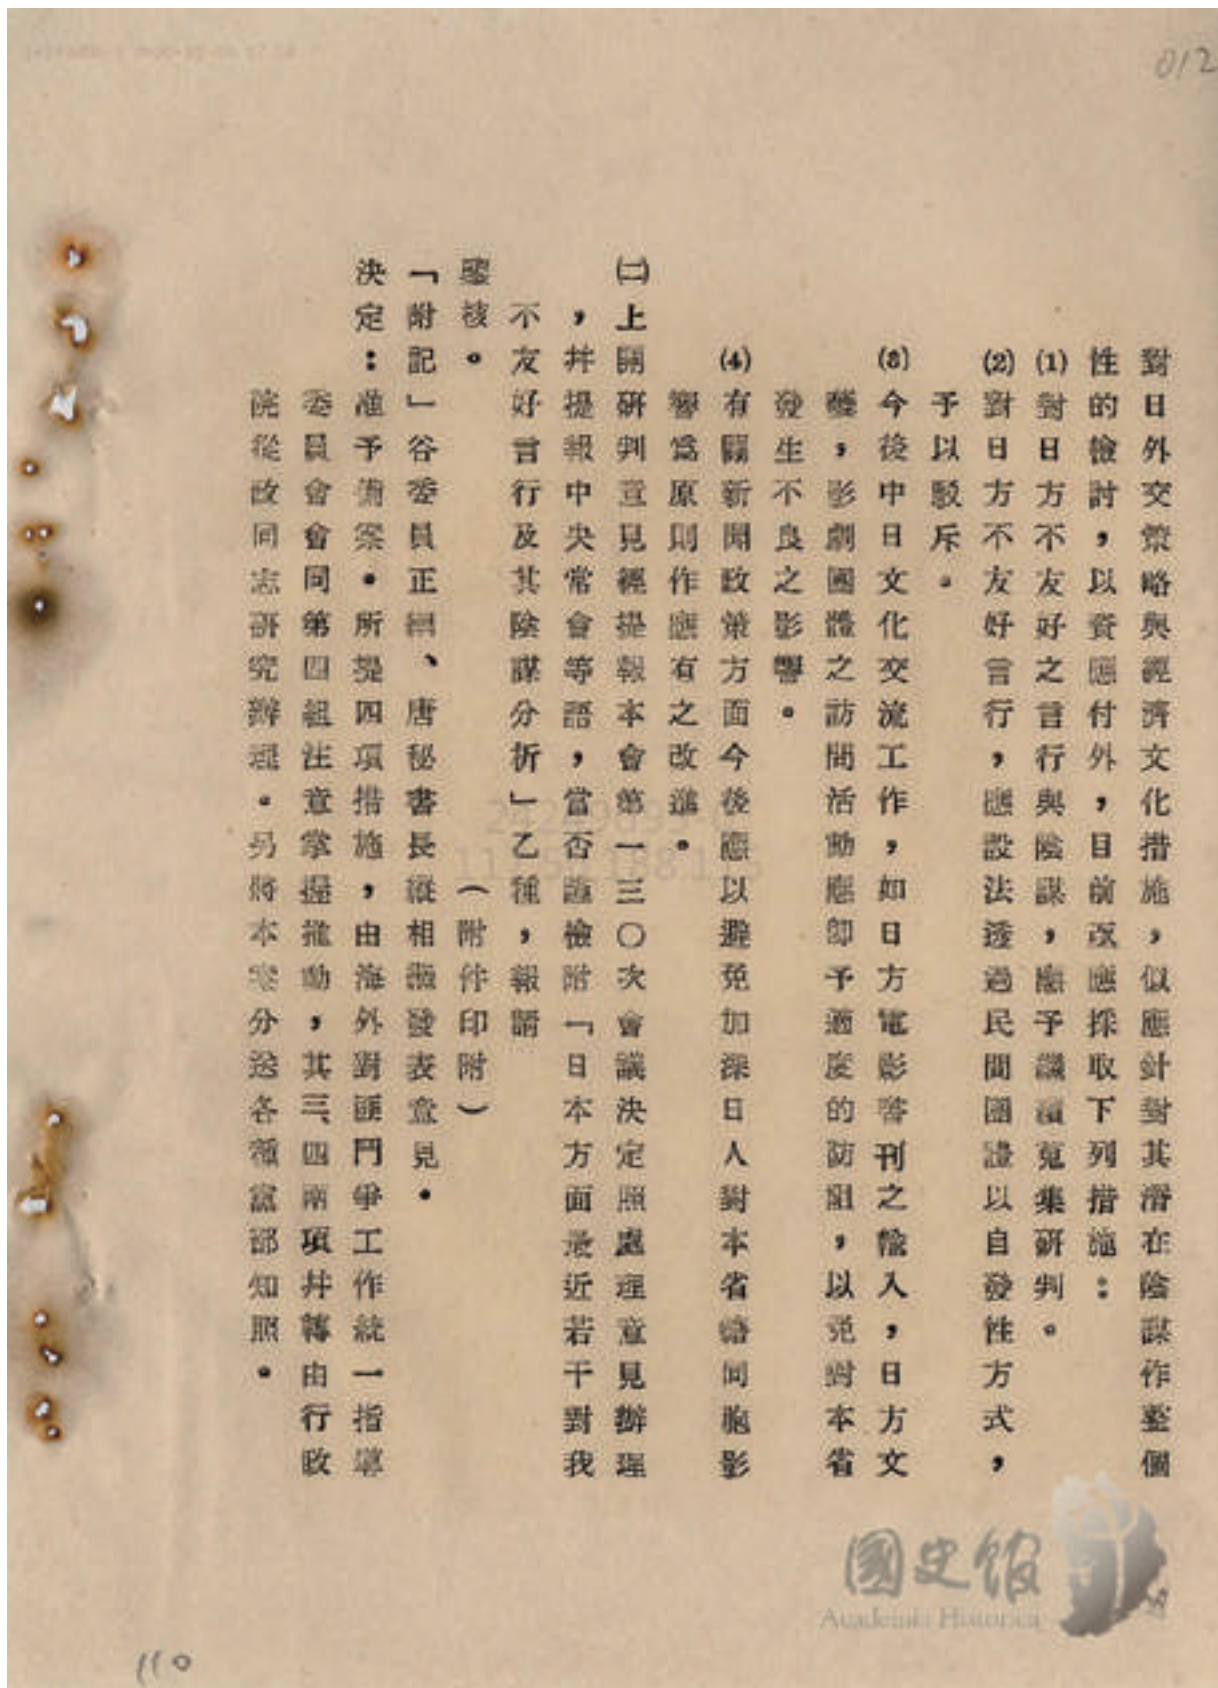 012
對日外交策略與經濟文化措施，似應針對其潛在陰謀作整個
性的檢討，以資應付外，目前改應採取下列措施：
(1)對日方不友好之言行與陰謀，應予繼續蒐集研判。
(2)對日方不友好言行，應設法透過民間團體以自發性方式，
予以駁斥。
(3)今後中日文化交流工作，如日方電影書刊之輸入，日方文
藝，影劇團體之訪問活動應即予適度的防阻，以免對本省
發生不良之影響。
(4)有關新聞政策方面今後應以避免加深日人對本省籍同胞影
響為原則作應有之改進。
㈡上開研判意見經提報本會第一三〇次會議決定照處理意見辦理
，并提報中央常會等語，當否謹檢附「日本方面最近若干對我
不友好言行及其陰謀分折」乙種，報請
鑒核。（附件印附）
「附記」谷委員正綱、唐秘書長縱相繼發表意見。
決定：准予備案。所提四項措施，由海外對匪鬥爭工作統一指導
委員會會同第四組注意掌握推動，其三、四兩項并轉由行政
院從政同志研究辦理。另將本案分送各種黨部知照。
國史館
Academia Historica
110